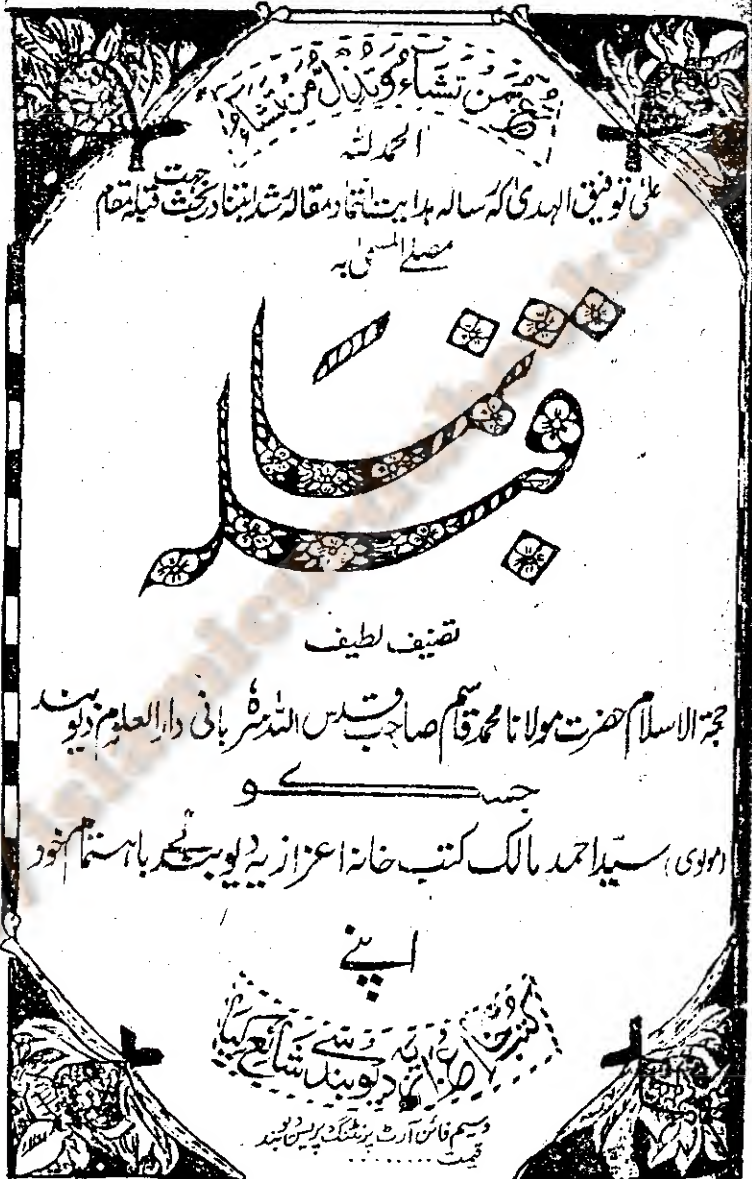 تعز من تشاء وتذل من تشاء
الحمد للہ
علیٰ توفیق الہدیٰ کہ رسالہ ہدایت انتما و مقالہ رشد ابتنا در بحث جہت قبلہ مقام
مصلے المسمیٰ بہ
قبلہ نما
تصنیف لطیف
حجۃ الاسلام حضرت مولانا محمد قاسم صاحب قدس اللہ سرہ بانی دار العلوم دیوبند
جس کو
(مولوی) سید احمد مالک کتب خانہ اعزازیہ دیوبند نے باہتمام خود
اپنے
کتب خانہ اعزازیہ دیوبند سے شائع کیا
وسیم فائن آرٹ پرنٹنگ پریس دیوبند
قیمت ........